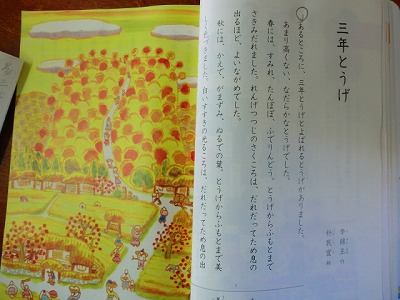 三年とうげ
李錦玉 作
朴民宜 絵
あるところに、三年とうげとよばれるとうげがありました。
あまり高くない、なだらかなとうげでした。
春には、すみれ、たんぽぽ、ふでりんどう。とうげからふもとまで
さきみだれました。れんげつつじのさくころは、だれだってため息の
出るほど、よいながめでした。
秋には、かえで、がまずみ、ぬるでの葉。とうげからふもとまで美
しく色づきました。白いすすきの光るころは、だれだってため息の出